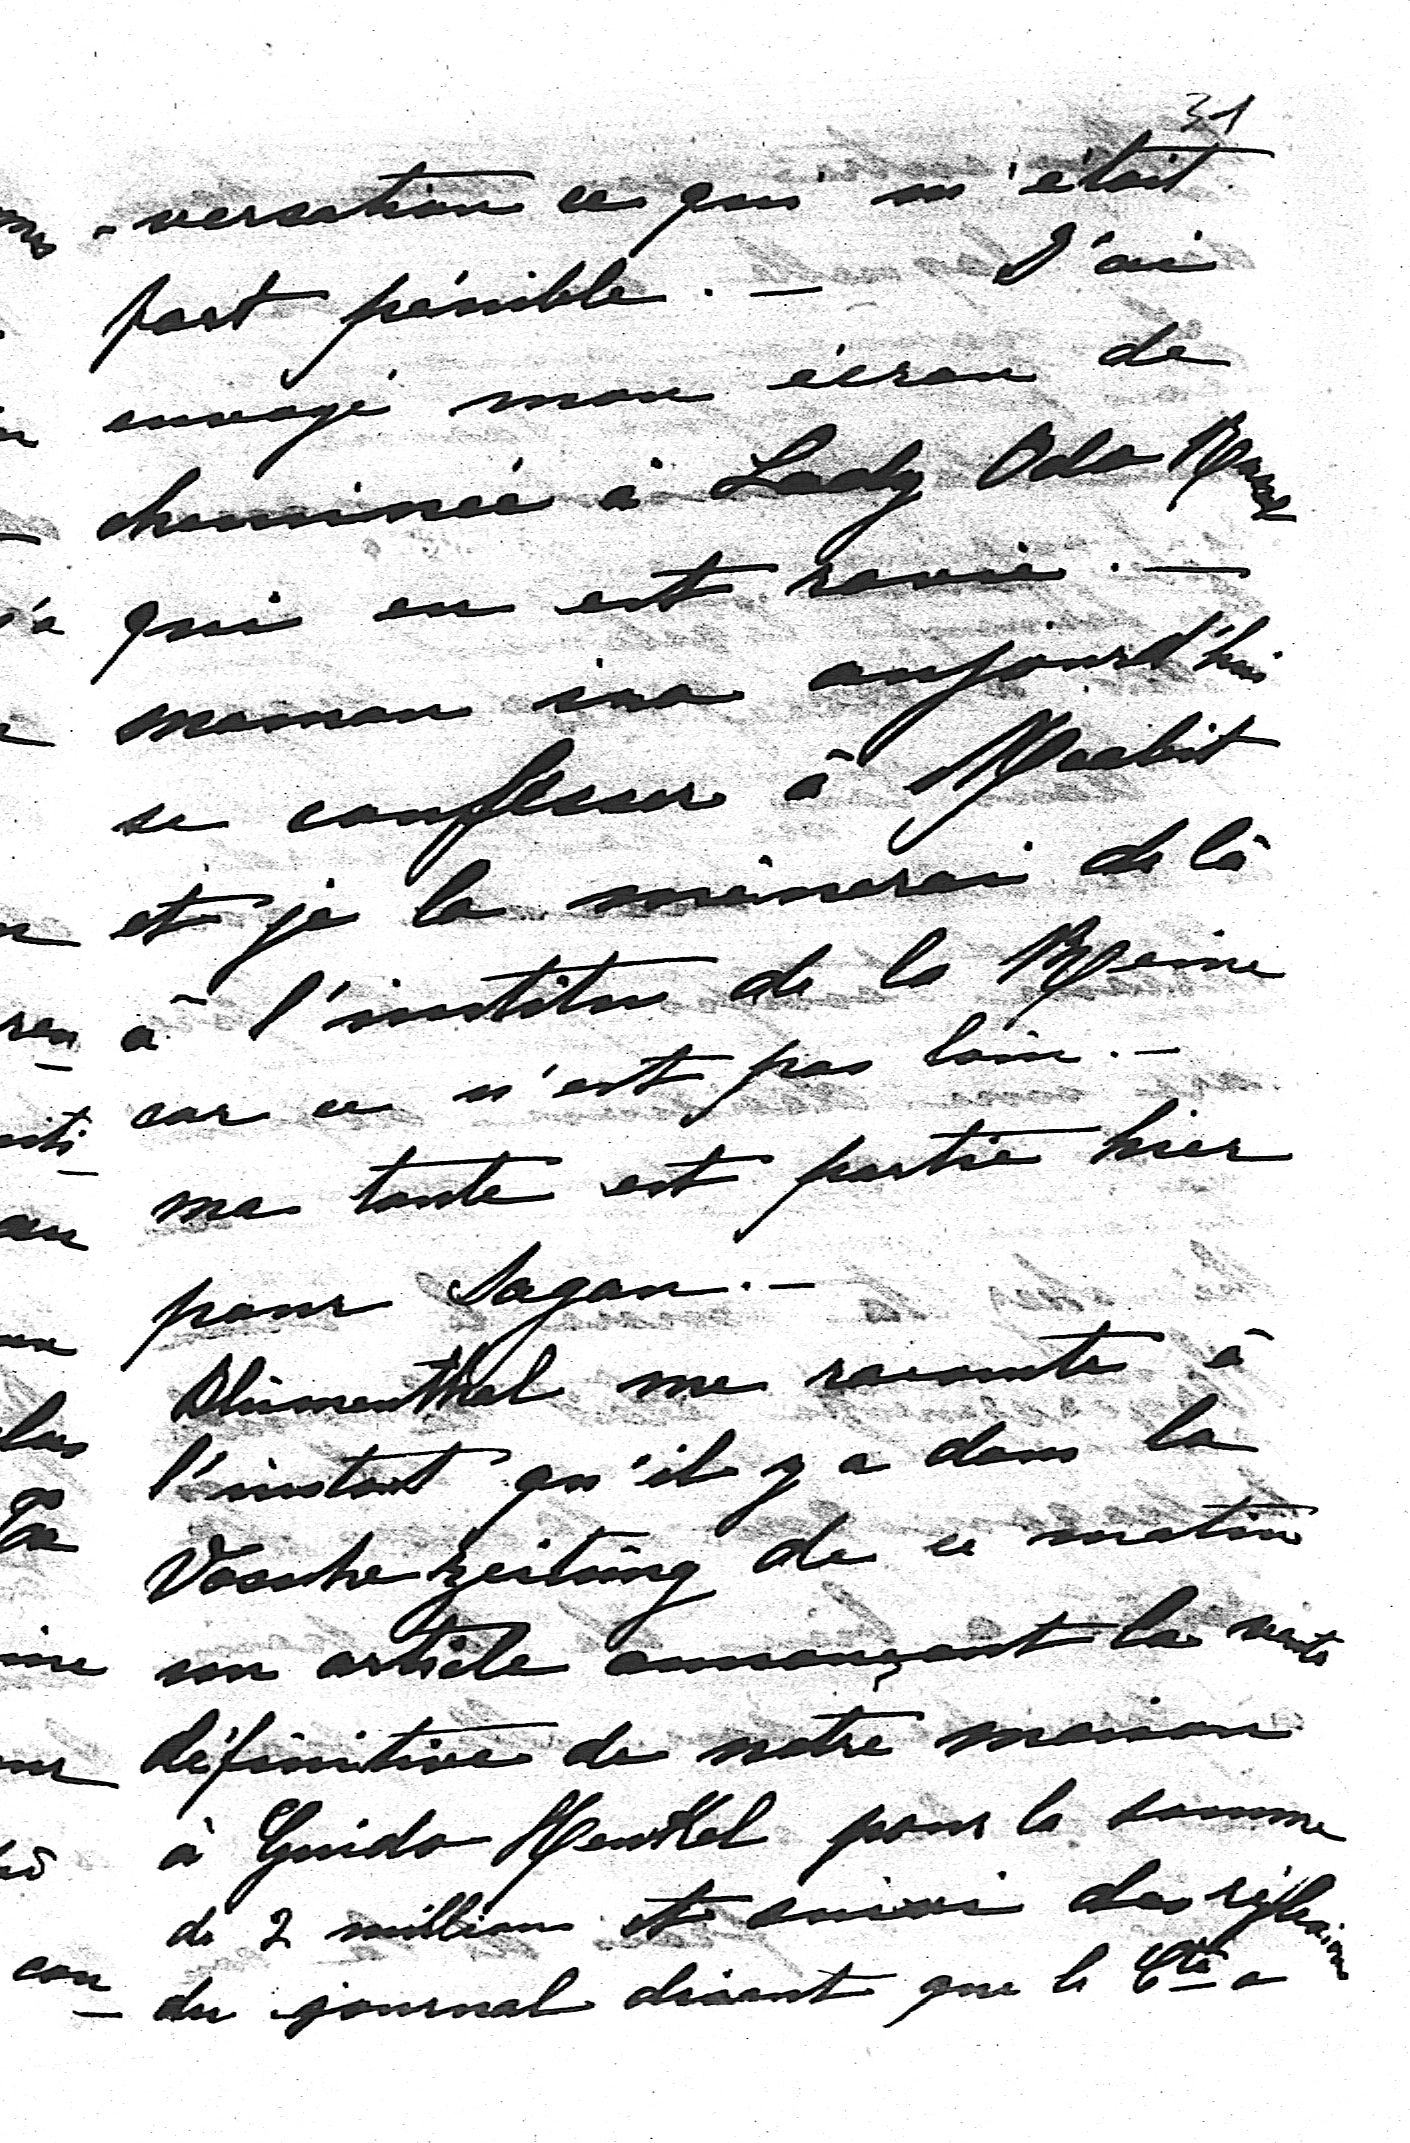 31
-versation ce qui m'était
fort pénible. — J'ai
envoyé mon écran de
cheminée à Lady Odo
qui en est ravie. —
maman ira aujourd'hui
se confesser à Moabit
et je la mènerai de là
à l'institu de la Reine
car ce n'est pas loin. —
ma tante est partie hier
pour Sagan. —
Blumenthal me raconte à
l'instant qu'il y a dans la
Vosche zeitung de ce matin
un article annonçant la vente
définitive de notre maison
à Guido Henkel pour la somme
de 2 millions et suivi des réflexions
du journal disant que le Cte a